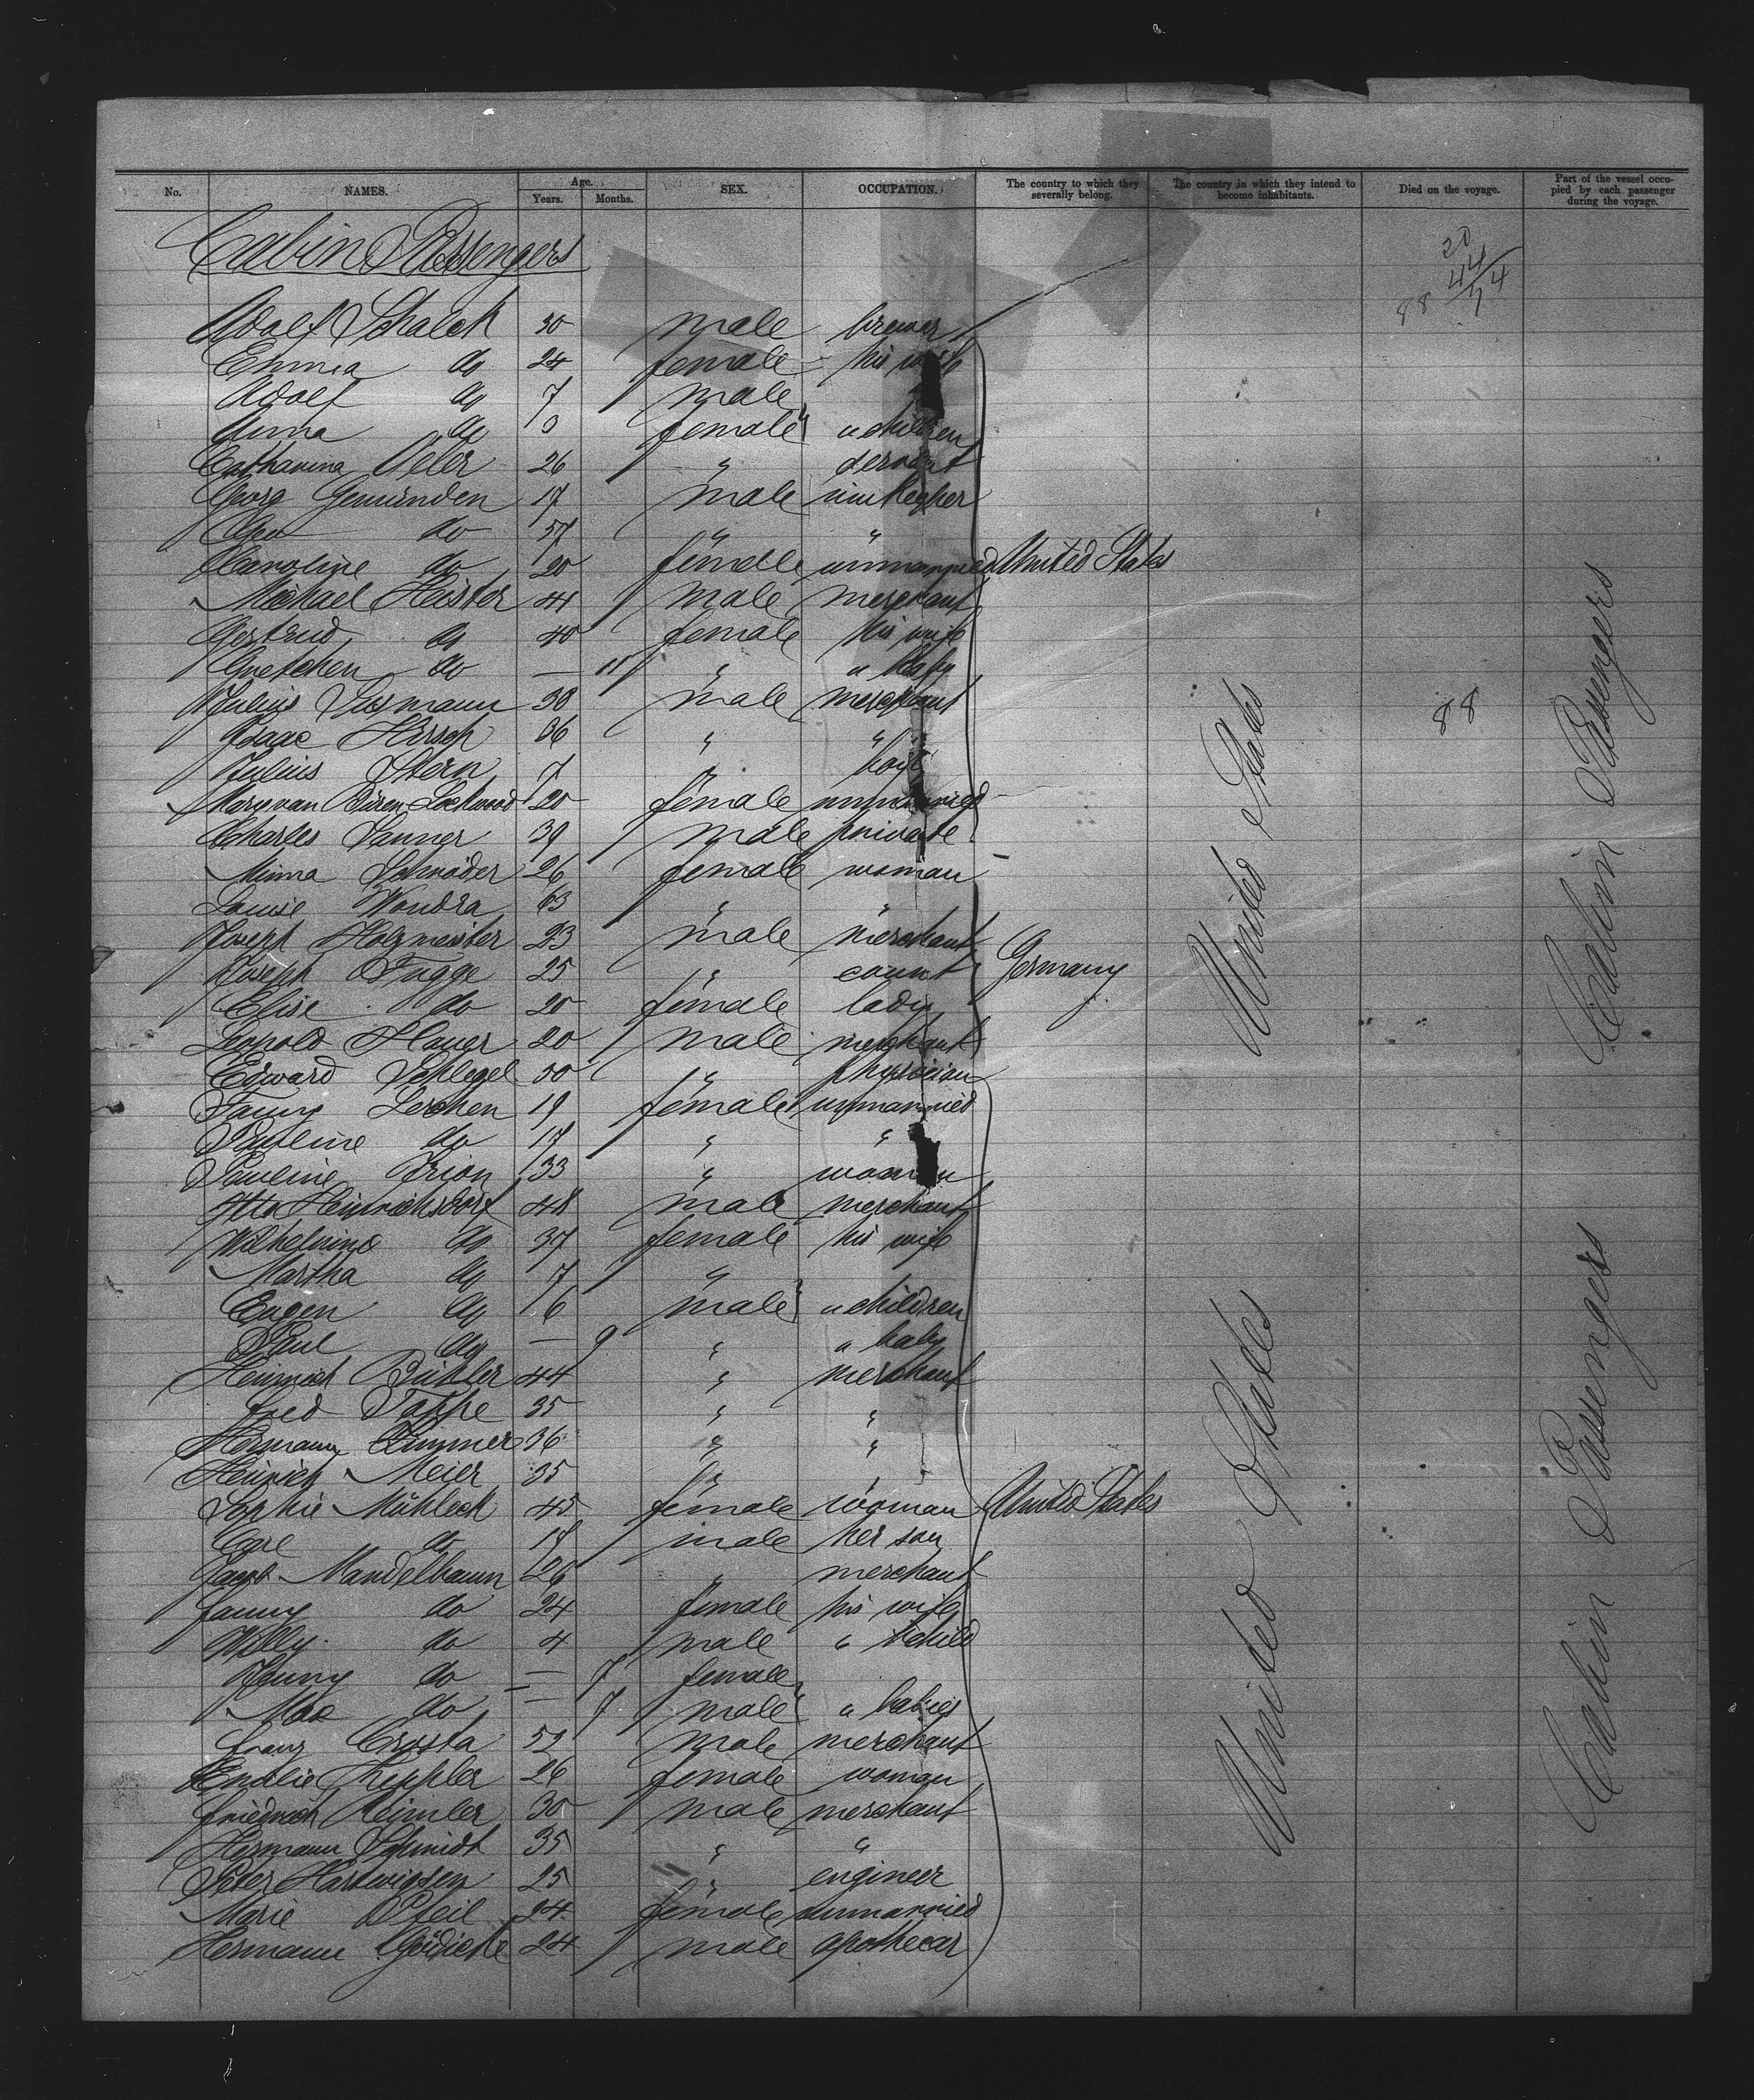 No. NAMES. Age. Years. Months. SEX. OCCUPATION. The country to which they severally belong. The country in which they intend to become inhabitants. Died on the voyage. Part of the vessel occupied by each passenger during the voyage.
Cabin Passengers
20
44
88 74
Adolf Schalck 30 male brewer
Emma do 24 female his wife
Adolf do 7 male
Anna do 6 female " children
Catharina Peter 26 " servant
Georg Gemünden 17 male
do 57 " "
Caroline do 20 female unmarried United States
Michael Heister 44 male merchant
Gertrud do 40 female his wife
Gretchen do — 11 " " baby
Julius Susmann 38 male merchant
Isaac Hirsch 36 " "
Julius Stern 7 " boy
Mary van Büren-Lockwood 20 female unmarried
Charles Sanner 39 male private
Minna Schröder 26 female woman
Louise Wondra 63 " "
Joseph Holzmeister 23 male merchant
Joseph Fugge 25 " count Germany
Elise do 20 female lady
Leopold Hauer 20 male merchant
Edward Schlegel 50 " physician
Fanny Lerchen 19 female unmarried
Pauline do 17 " "
Pauline Trion 33 " woman
Otto Heinrichsdorf 48 male merchant
Wilhelmine do 37 female his wife
Martha do 7 "
Eugen do 6 male " children
Paul do — 9 " " baby
Heinrich Bühler 44 " merchant
Fred Tappe 35 " "
Hermann Zimmer 36 " "
Heinrich Meier 35 " "
Sophie Mühleck 45 female woman United States
Carl do 17 male her son
Jacob Mandelbaum 26 " merchant
Fanny do 24 female his wife
Willy do 4 male " child
Jenny do — 7 female
Max do — 7 male " babies
Franz Crosta 52 male merchant
Emilie Keppler 26 female woman
Friedrich Reimler 30 male merchant
Hermann Schmidt 35 " "
Peter Hartwigsen 25 " engineer
Marie Pfeil 24 female unmarried
Hermann Gödicke 24 male apothecar
United States
United States
88
Cabin Passengers
Cabin Passengers